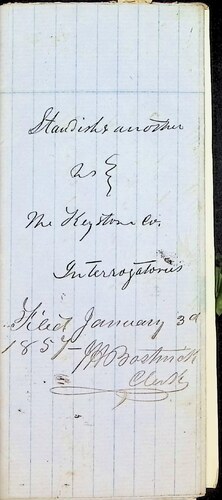 Standish & another
vs
The Keystone Co.
Interrogatories
Filed January 3d
1857 J H Bostwick
Clerk